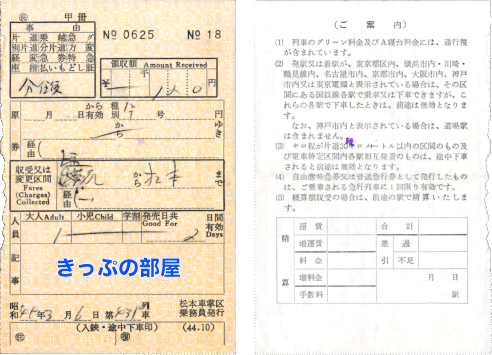 甲冊
№ 0625 № 18
事由
片道乗越急グ
別片分片方変
経変急券特急
座指払いもどし証
領収額 Amount Received
千 円
原券
月 日 から 種
日有効 別 号
から ゆき
経由
収受又は
変更区間
Fares
(Charges)
Collected
から 松本 まで
経由
人員
大人Adult 小児Child 学割 発売日共 日間
Good For 有効
Days
1 2
記事
きっぷの部屋
昭和 45年 3月 6日 第 列車
松本車掌区
乗務員発行
(入鋏・途中下車印) (44.10)
(ご案内)
(1) 列車のグリーン料金及びA寝台料金には、通行税
が含まれています。
(2) 発駅又は着駅が、東京都区内、横浜市内・川崎・
鶴見線内、名古屋市内、京都市内、大阪市内、神戸
市内又は東京電環と表示されている場合は、その区
間にある国鉄線各駅で乗又は下車できますが、こ
れらの各駅で下車したときは、前途は無効となりま
す。
なお、神戸市内と表示されている場合は、道場駅
は含まれません。
(3) キロ程が片道 キロメートル以内の区間のもの及
び電車特定区間内各駅相互発着のものは、途中下車
されると前途は無効となります。
(4) 自由席特急券又は普通急行券として発行したもの
は、ご乗車される急行列車に1回限り有効です。
(5) 概算額収受の場合は、前途の駅で精算いたしま
す。
精算
運賃 合計
増運賃 差過
料金 引不足
増料金 月 日
手数料 駅